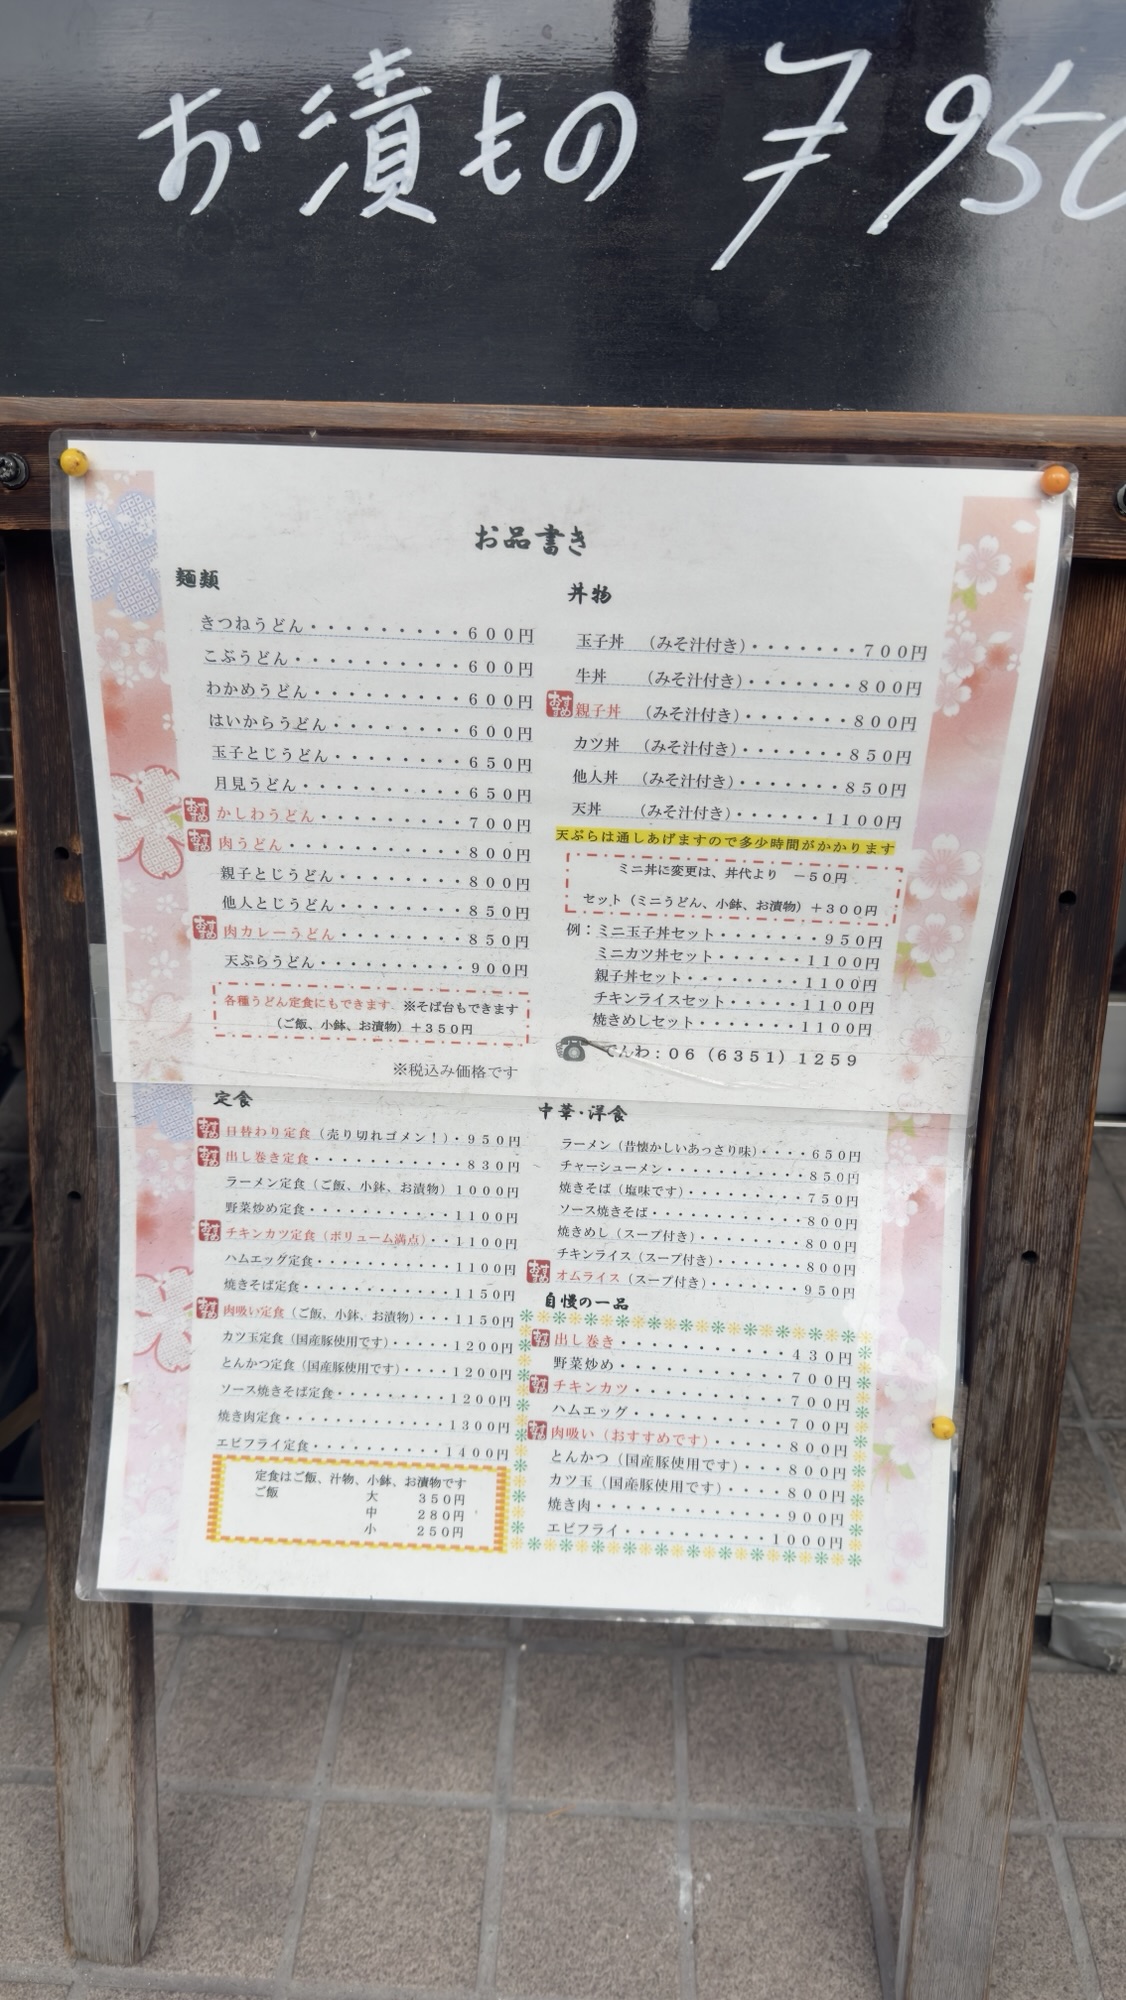 お漬もの ¥950
お品書き
麺類
きつねうどん・・・・・・・・・600円
こぶうどん・・・・・・・・・・600円
わかめうどん・・・・・・・・・600円
はいからうどん・・・・・・・・600円
玉子とじうどん・・・・・・・・650円
月見うどん・・・・・・・・・・650円
おすすめ かしわうどん・・・・・・・・・700円
おすすめ 肉うどん・・・・・・・・・・・800円
親子とじうどん・・・・・・・・800円
他人とじうどん・・・・・・・・850円
おすすめ 肉カレーうどん・・・・・・・・850円
天ぷらうどん・・・・・・・・・900円
各種うどん定食にもできます。※そば台もできます
(ご飯、小鉢、お漬物)+350円
※税込み価格です
丼物
玉子丼 (みそ汁付き)・・・・・・・700円
牛丼 (みそ汁付き)・・・・・・・800円
おすすめ 親子丼 (みそ汁付き)・・・・・・・800円
カツ丼 (みそ汁付き)・・・・・・・850円
他人丼 (みそ汁付き)・・・・・・・850円
天丼 (みそ汁付き)・・・・・・1100円
天ぷらは通しあげますので多少時間がかかります
ミニ丼に変更は、丼代より −50円
セット(ミニうどん、小鉢、お漬物)+300円
例:ミニ玉子丼セット・・・・・・・950円
ミニカツ丼セット・・・・・・1100円
親子丼セット・・・・・・・・1100円
チキンライスセット・・・・・1100円
焼きめしセット・・・・・・・1100円
でんわ:06(6351)1259
定食
おすすめ 日替わり定食(売り切れゴメン!)・950円
おすすめ 出し巻き定食・・・・・・・・・・・830円
ラーメン定食(ご飯、小鉢、お漬物)1000円
野菜炒め定食・・・・・・・・・・・1100円
おすすめ チキンカツ定食(ボリューム満点)・・1100円
ハムエッグ定食・・・・・・・・・・1100円
焼きそば定食・・・・・・・・・・・1150円
おすすめ 肉吸い定食(ご飯、小鉢、お漬物)・・・1150円
カツ玉定食(国産豚使用です)・・・・・1200円
とんかつ定食(国産豚使用です)・・・・1200円
ソース焼きそば定食・・・・・・・・・1200円
焼き肉定食・・・・・・・・・・・・・1300円
エビフライ定食・・・・・・・・・・・1400円
定食はご飯、汁物、小鉢、お漬物です
ご飯 大 350円
中 280円
小 250円
中華・洋食
ラーメン(昔懐かしいあっさり味)・・・・650円
チャーシューメン・・・・・・・・・・・850円
焼きそば(塩味です)・・・・・・・・・750円
ソース焼きそば・・・・・・・・・・・・800円
焼きめし(スープ付き)・・・・・・・・800円
チキンライス(スープ付き)・・・・・・800円
おすすめ オムライス(スープ付き)・・・・・・・950円
自慢の一品
おすすめ 出し巻き・・・・・・・・・・・・430円
野菜炒め・・・・・・・・・・・・700円
おすすめ チキンカツ・・・・・・・・・・・700円
ハムエッグ・・・・・・・・・・・700円
おすすめ 肉吸い(おすすめです)・・・・・800円
とんかつ(国産豚使用です)・・・800円
カツ玉(国産豚使用です)・・・・800円
焼き肉・・・・・・・・・・・・・900円
エビフライ・・・・・・・・・・1000円